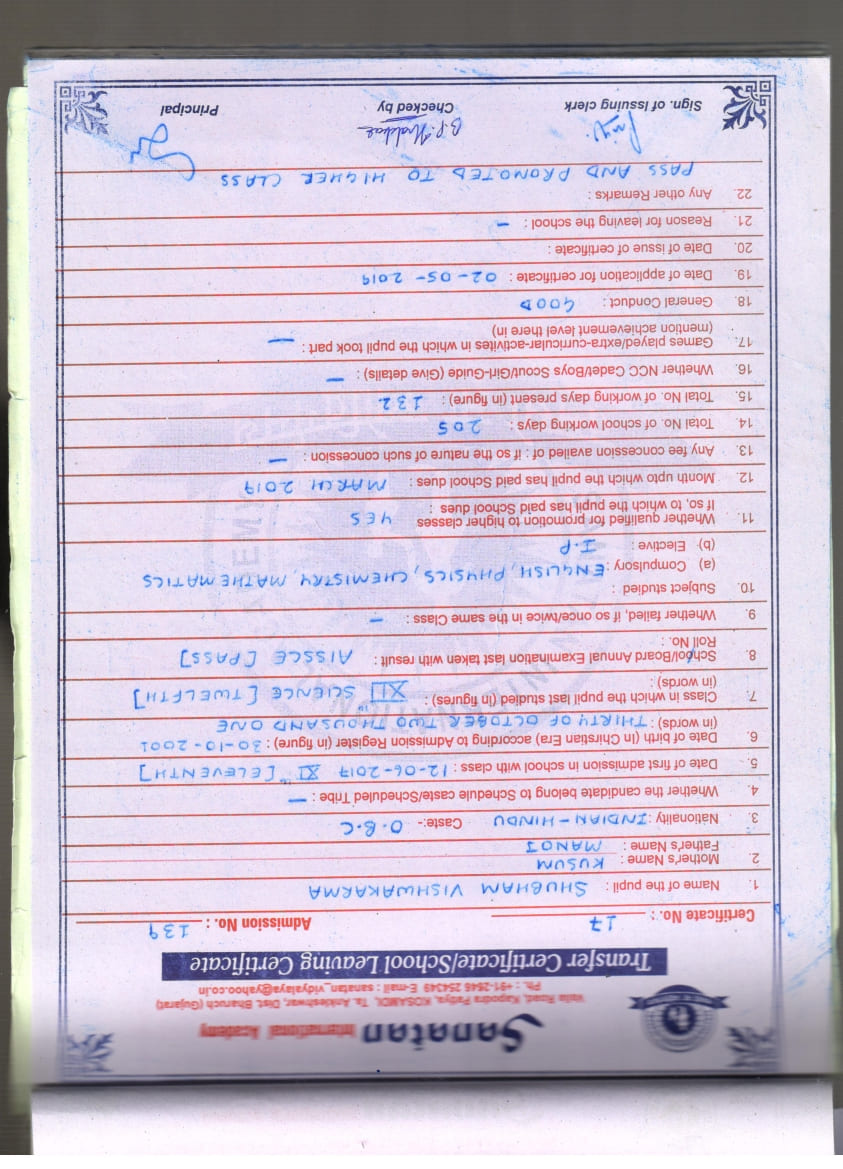 Sanatan International Academy
Valia Road, Kapodra Patiya, KOSAMDI, Ta. Ankleshwar, Dist. Bharuch (Gujarat)
Ph. : +91-2646 254349 E-mail : sanatan_vidyalaya@yahoo.co.in
Transfer Certificate/School Leaving Certificate
Certificate No. : 17 Admission No. : 139
1. Name of the pupil : SHUBHAM VISHWAKARMA
2 Mother's Name : KUSUM
Father's Name : MANOJ
3. Nationality : INDIAN-HINDU Caste:- O.B.C
4. Whether the candidate belong to Schedule caste/Scheduled Tribe : —
5. Date of first admission in school with class : 12-06-2017 XI th [ELEVENTH]
6. Date of birth (In Chirstian Era) according to Admission Register (in figure) : 30-10-2001
(in words) : THIRTY OF OCTOBER TWO THOUSAND ONE
7. Class in which the pupil last studied (in figures) : XII th SCIENCE [TWELFTH]
(in words) :
8. School/Board Annual Examination last taken with result : AISSCE [PASS]
Roll No. :
9. Whether failed, if so once/twice in the same Class : —
10. Subject studied :
(a) Compulsory : ENGLISH, PHYSICS, CHEMISTRY, MATHEMATICS
(b) Elective : I.P
11. Whether qualified for promotion to higher classes YES
If so, to which the pupil has paid School dues :
12. Month upto which the pupil has paid School dues : MARCH 2019
13. Any fee concession availed of : if so the nature of such concession : —
14. Total No. of school working days : 205
15. Total No. of working days present (in figure) : 132
16. Whether NCC Cadet/Boys Scout/Girl-Guide (Give details) : —
17. Games played/extra-curricular-activites in which the pupil took part : —
(mention achievement level there in)
18. General Conduct : GOOD
19. Date of application for certificate : 02-05-2019
20. Date of issue of certificate :
21. Reason for leaving the school : —
22. Any other Remarks :
PASS AND PROMOTED TO HIGHER CLASS
Sign. of Issuing clerk Checked by Principal